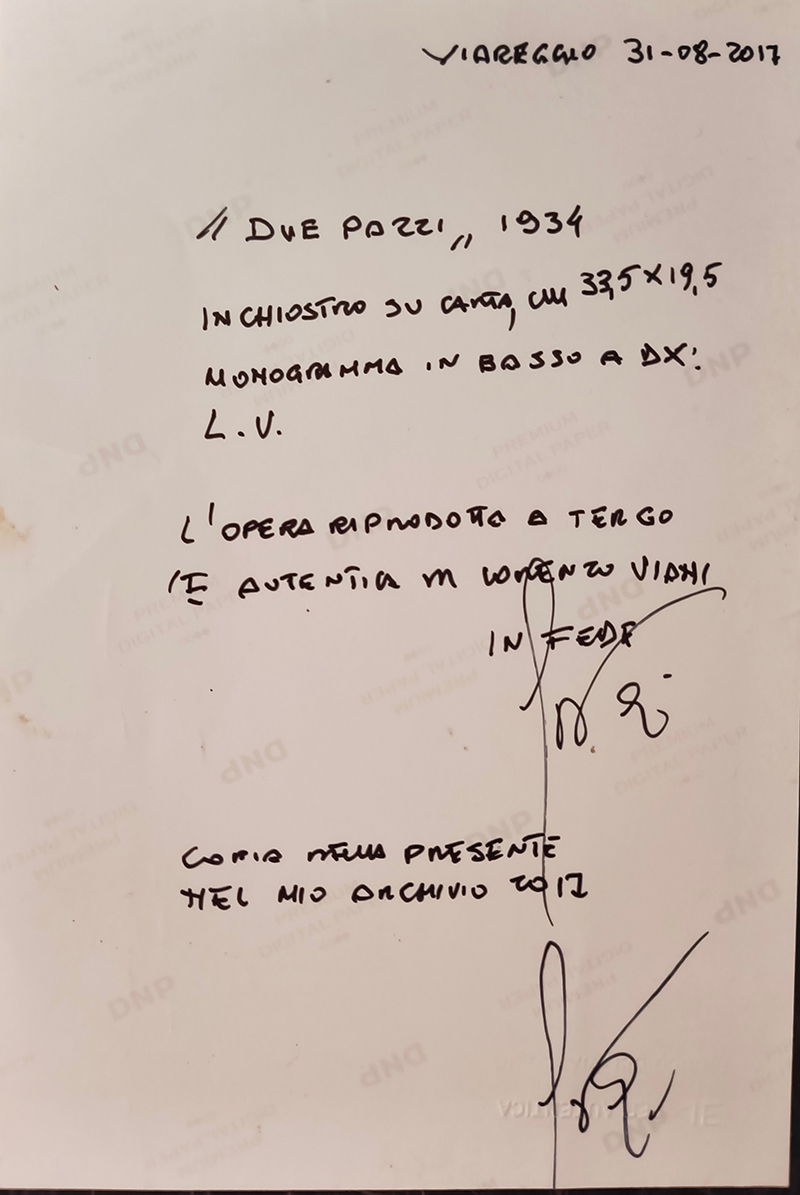 VIAREGGIO 31-08-2017
" DUE PAZZI „ 1934
INCHIOSTRO SU CARTA, CM 33,5 X 19,5
MONOGRAMMA IN BASSO A DX:
L.V.
L'OPERA RIPRODOTTA A TERGO
E' AUTENTICA DI LORENZO VIANI
IN FEDE
COPIA DELLA PRESENTE
NEL MIO ARCHIVIO 2017
DNP
PREMIUM
DIGITAL PAPER